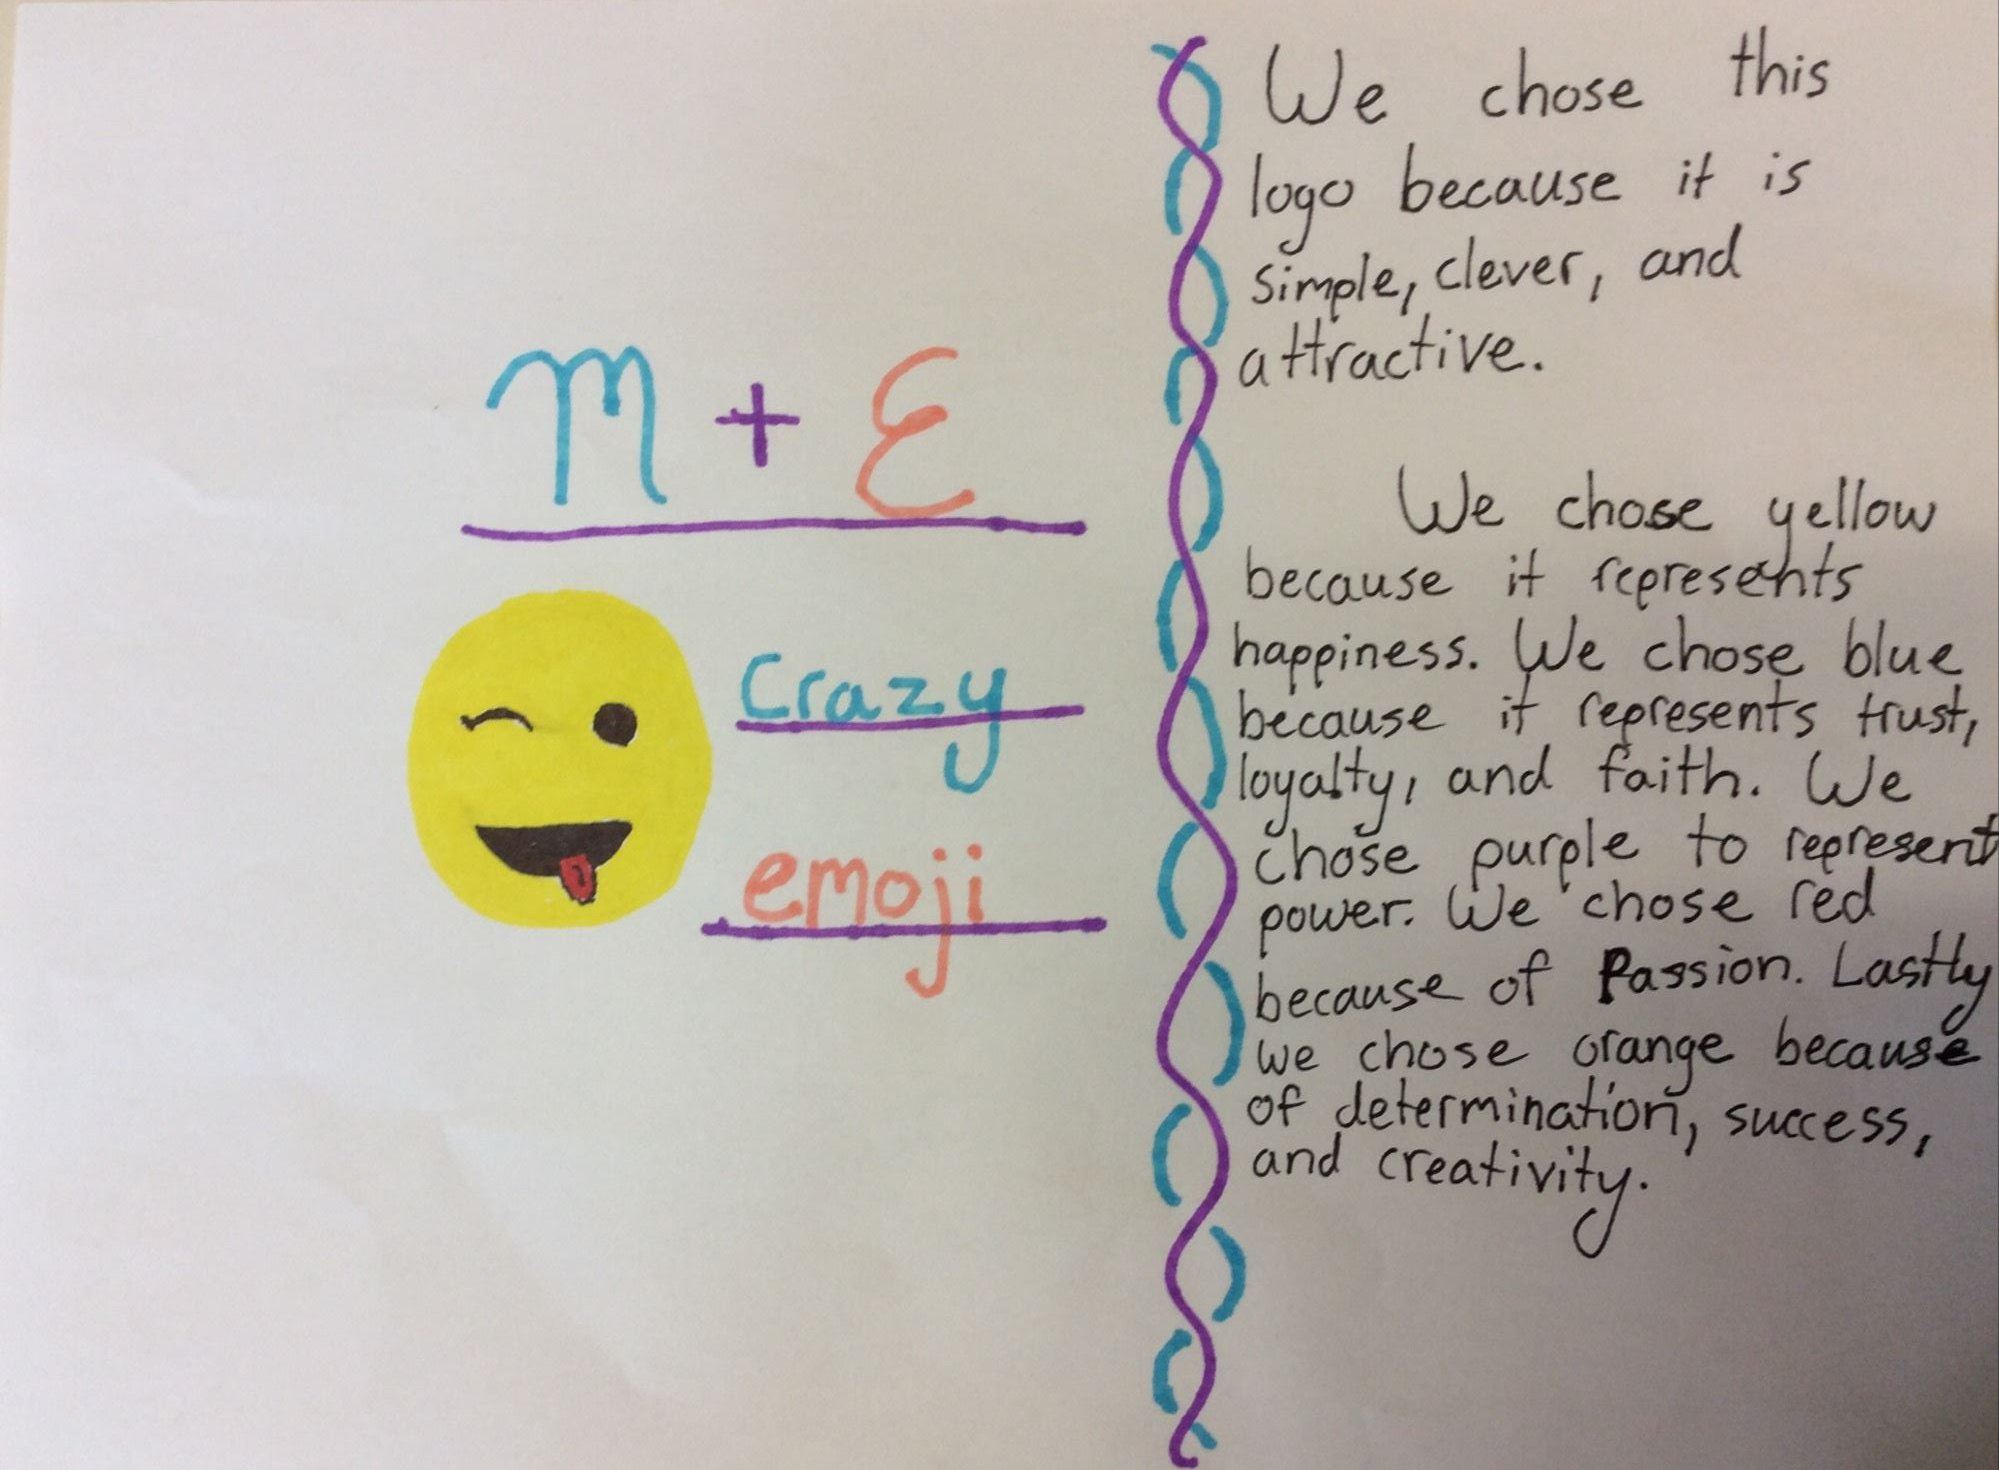 M + E
Crazy
emoji
We chose this
logo because it is
simple, clever, and
attractive.
We chose yellow
because it represents
happiness. We chose blue
because it represents trust,
loyalty, and faith. We
chose purple to represent
power. We chose red
because of Passion. Lastly
we chose orange because
of determination, success,
and creativity.